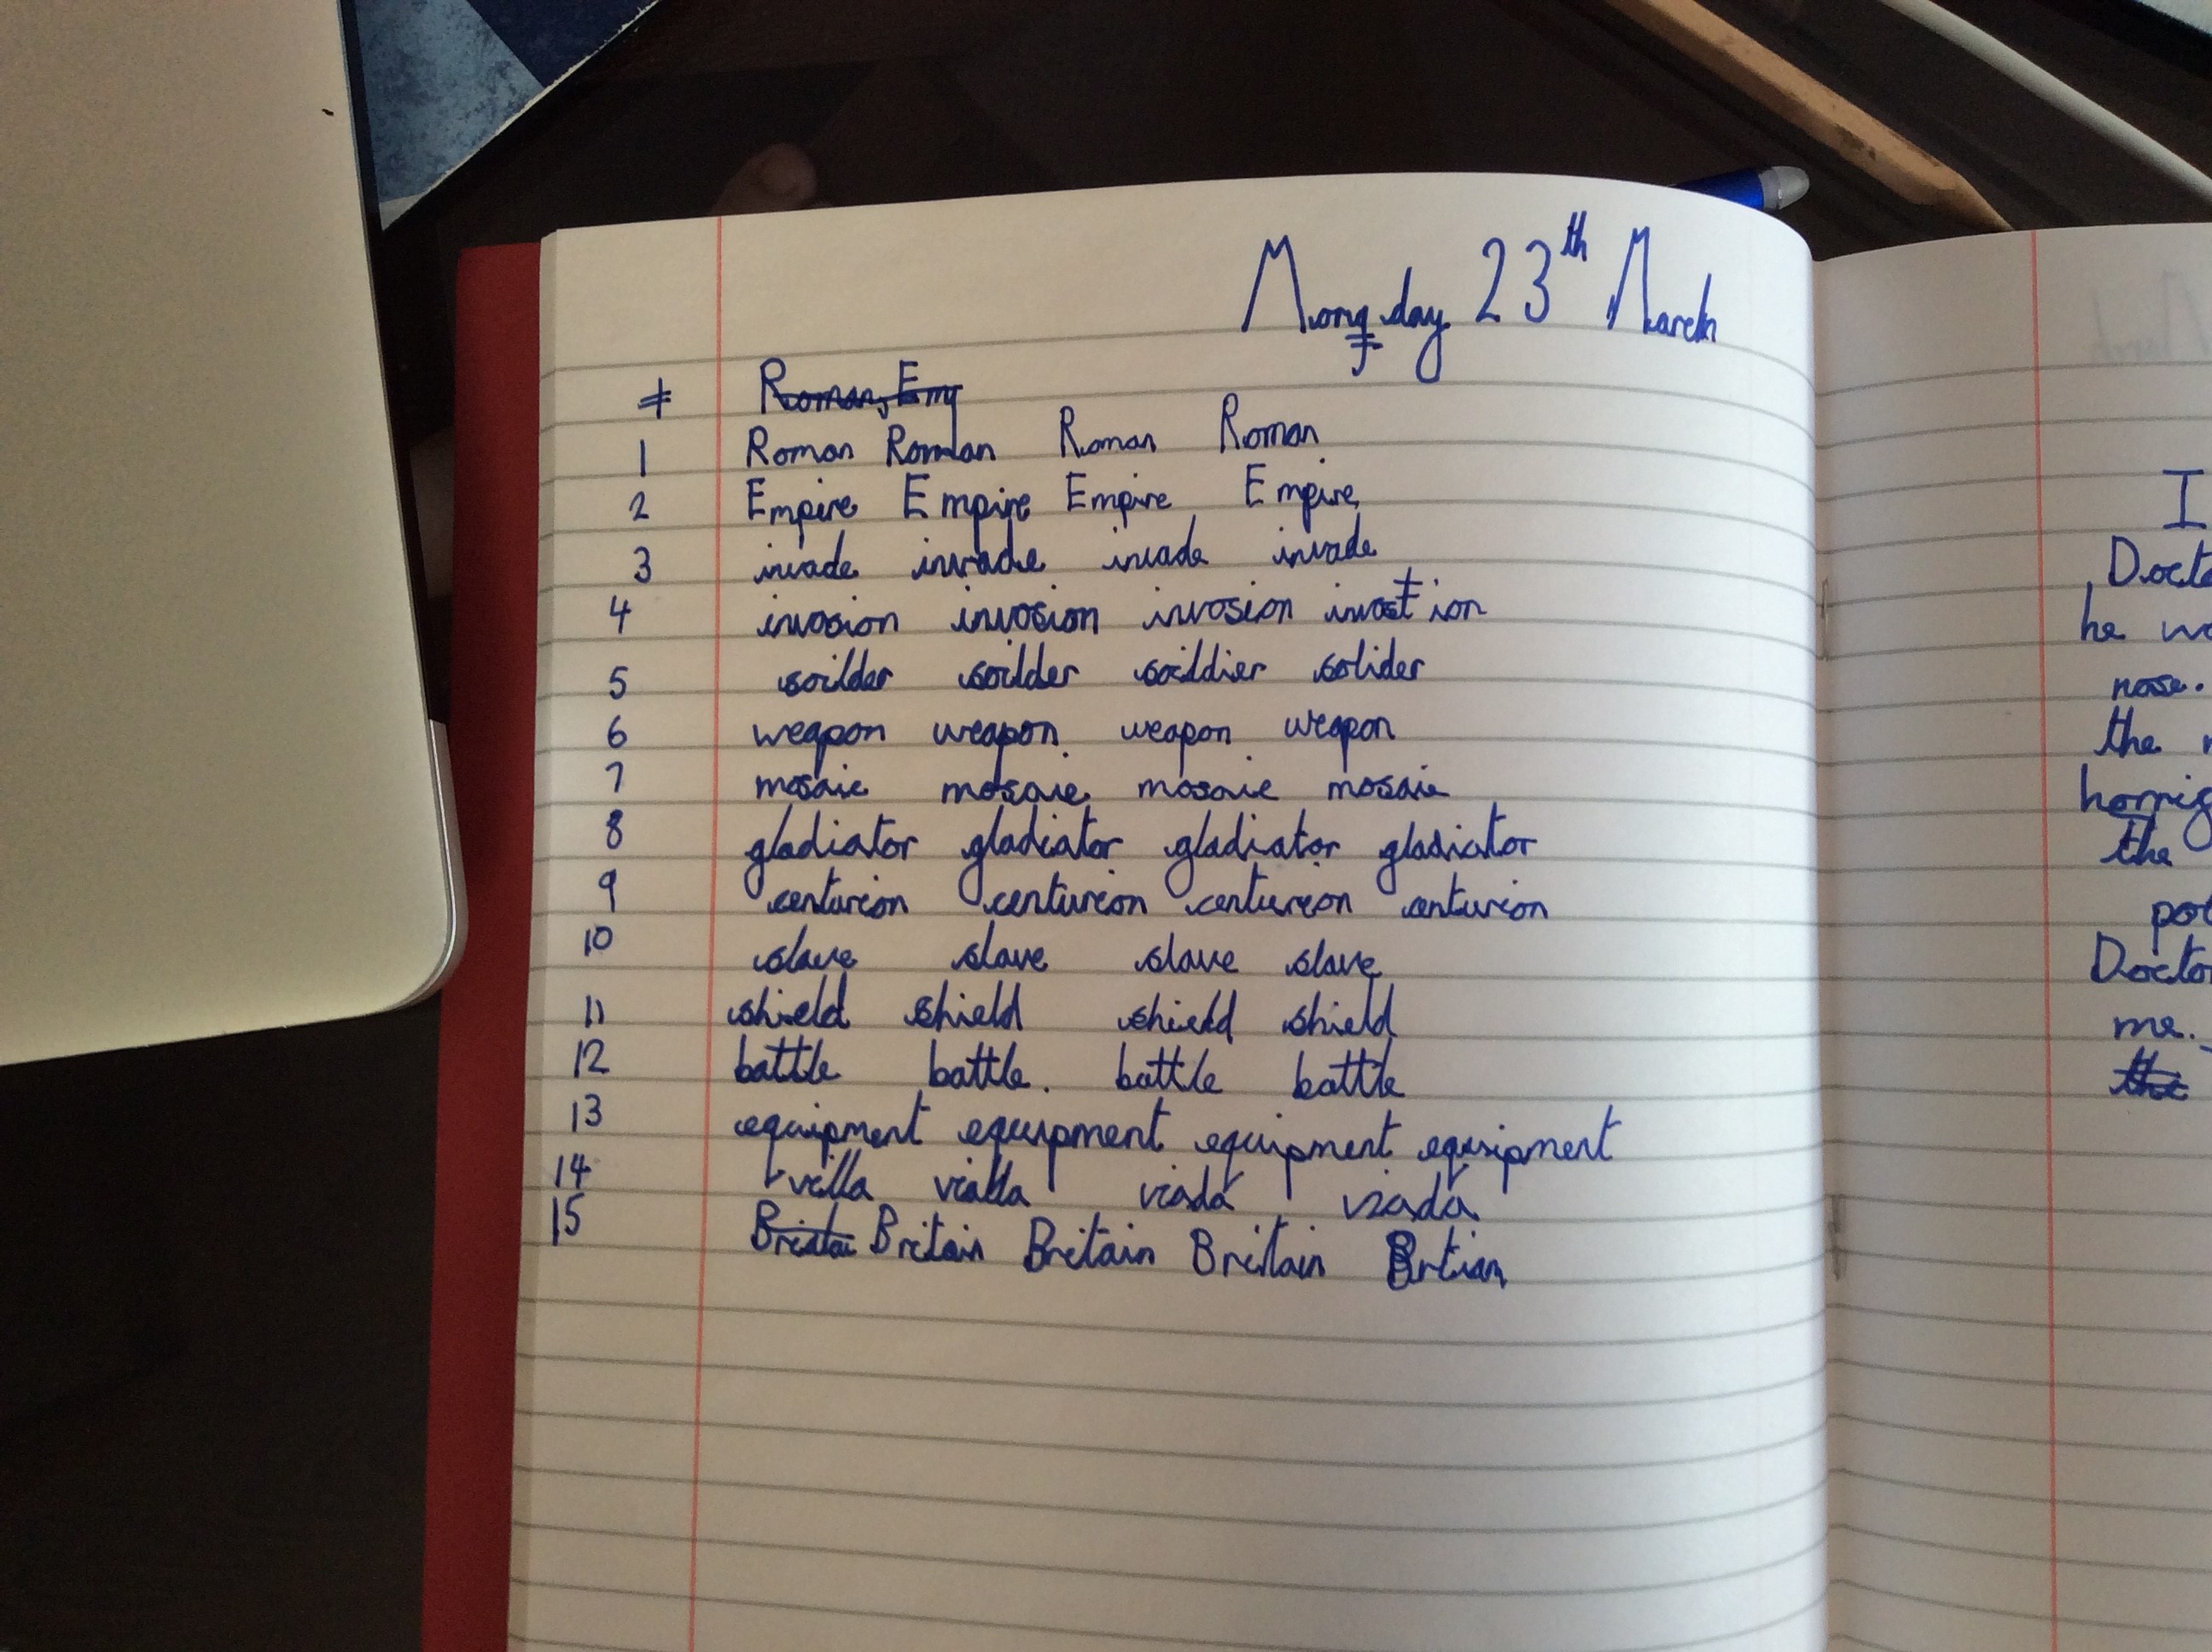 Monday 23th March
Roman, Emp
1 Roman Roman Roman Roman
2 Empire Empire Empire Empire
3 invade invade invade invade
4 invasion invasion invasion
5 soilder soilder soildier solider
6 weapon weapon weapon weapon
7 mosaic mosaic mosaic mosaic
8 gladiator gladiator gladiator gladiator
9 centurion centurion centurion centurion
10 slave slave slave slave
11 shield shield shield shield
12 battle battle. battle battle
13 equipment equipment equipment equipment
14 villa
15 Britain Britain Britain Brtian
I
Docto
he wo
nose.
the
the
Docto
me.
the